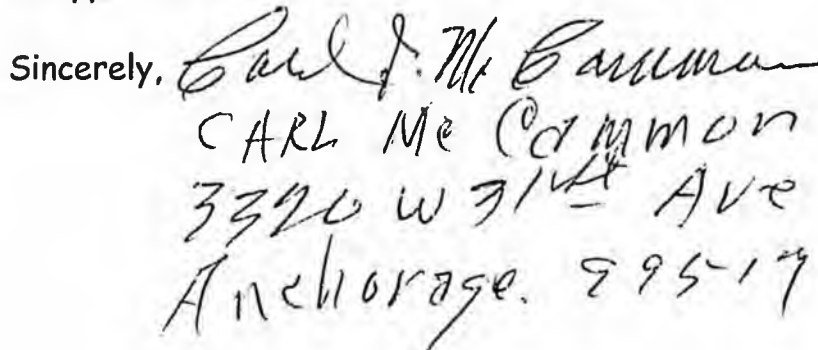 Sincerely, Carl J. Mc Cammon
CARL Mc Cammon
3320 W 31st Ave
Anchorage. 99517